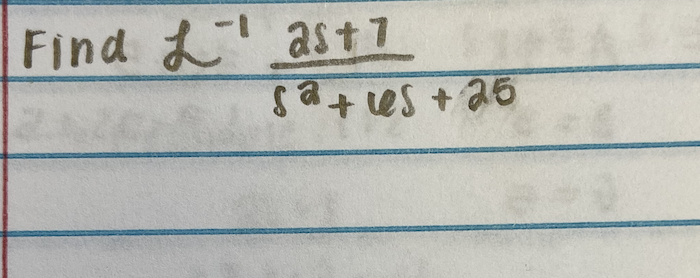 Find ℒ⁻¹ 2s+7
s²+6s+25